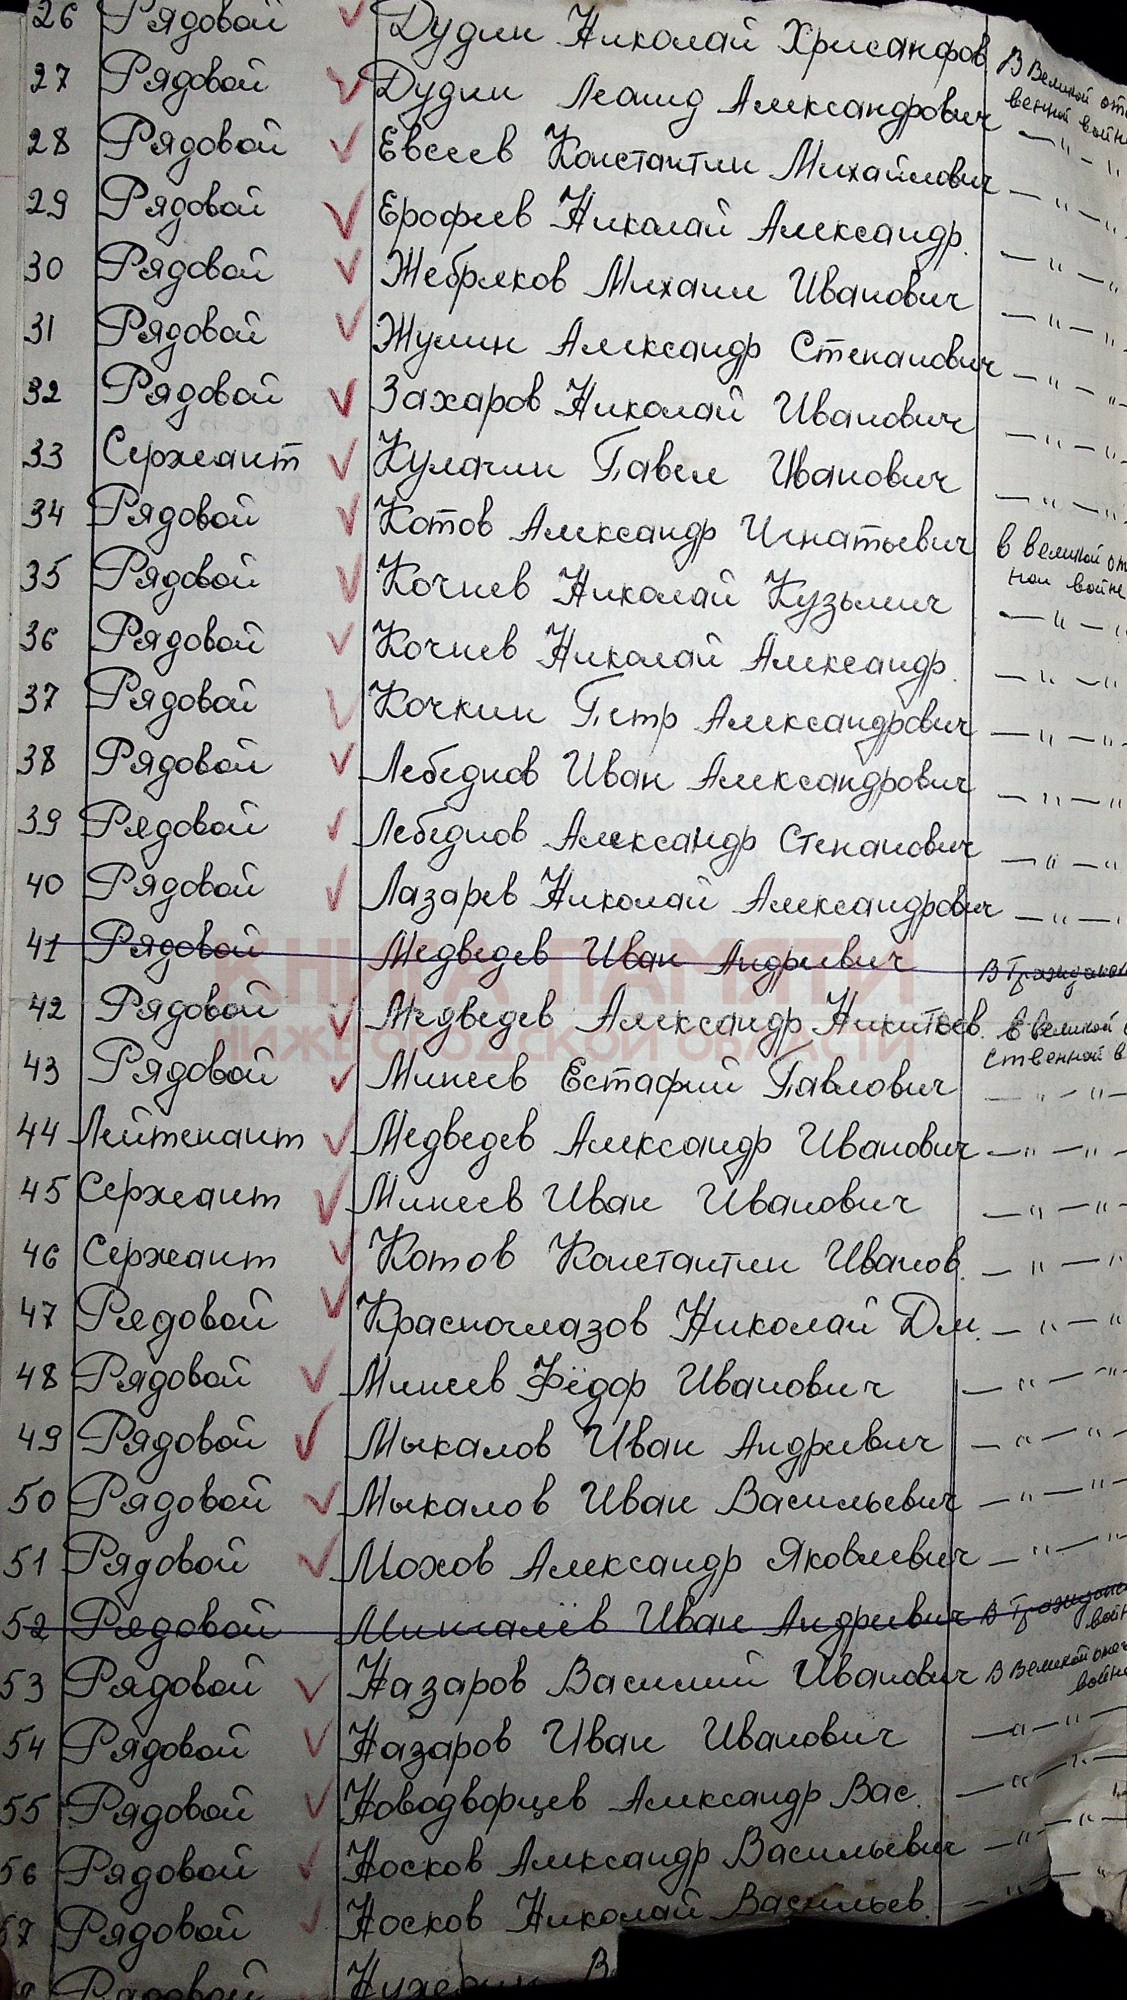 26 Рядовой Дудин Николай Хрисанфов.
27 Рядовой Дудин Леонид Александрович В Великой
венной войне
28 Рядовой Евсеев Константин Михайлович — " —
29 Рядовой Ерофеев Николай Александр. — " — "
30 Рядовой Жебряков Михаил Иванович — " — "
31 Рядовой Жулин Александр Степанович — " — "
32 Рядовой Захаров Николай Иванович — " — "
33 Сержант Кулагин Павел Иванович — " — "
34 Рядовой Котов Александр Игнатьевич в великой от
ной войне
35 Рядовой Кочнев Николай Кузьмич — " — "
36 Рядовой Кочнев Николай Александр. — " — "
37 Рядовой Кочкин Петр Александрович — " — "
38 Рядовой Лебеднов Иван Александрович — " — "
39 Рядовой Лебеднов Александр Степанович — " — "
40 Рядовой Лазарев Николай Александрович — " —
41 Рядовой Медведев Иван Андреевич В Граждан
КНИГА ПАМЯТИ
42 Рядовой Медведев Александр Никитьев. в великой
ственной в
НИЖЕГОРОДСКОЙ ОБЛАСТИ
43 Рядовой Минеев Естафий Павлович — " — "
44 Лейтенант Медведев Александр Иванович — " — "
45 Сержант Минеев Иван Иванович — " — "
46 Сержант Котов Константин Иванов. — " — "
47 Рядовой Красноглазов Николай Дм. — " — "
48 Рядовой Минеев Фёдор Иванович — " — "
49 Рядовой Мыкалов Иван Андреевич — " — "
50 Рядовой Мыкалов Иван Васильевич — " — "
51 Рядовой Мохов Александр Яковлевич — " — "
52 Рядовой Мингалёв Иван Андреевич В Гражданс
войн
53 Рядовой Назаров Василий Иванович В Великой отеч
войне
54 Рядовой Назаров Иван Иванович — " — "
55 Рядовой Новодворцев Александр Вас. — " — "
56 Рядовой Носков Александр Васильевич — " — "
57 Рядовой Носков Николай Васильев. — " — "
Рядовой В